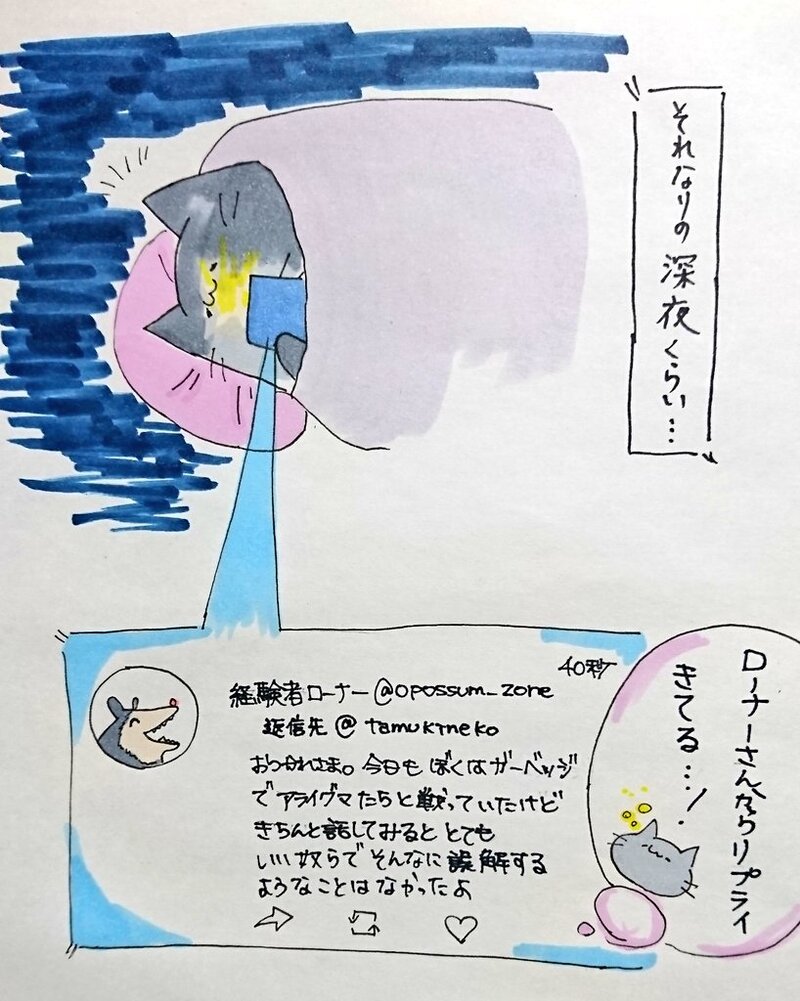 それなりの深夜くらい…
40秒
経験者ローナー@opossum_zone
返信先@tamukineko
おつかれさま。今日もぼくはガーベッジ
でアライグマたちと戦っていたけど
きちんと話してみるととても
いい奴らでそんなに誤解する
ようなことはなかったよ
ローナーさんからリプライ
きてる…!